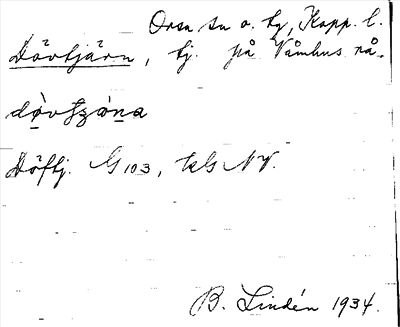 Orsa sn o. tg, Kopp. l.
Dövtjärn, tj. på Våmhus rå.
Döftj. G 103, tkG NV.
B. Lindén 1934.